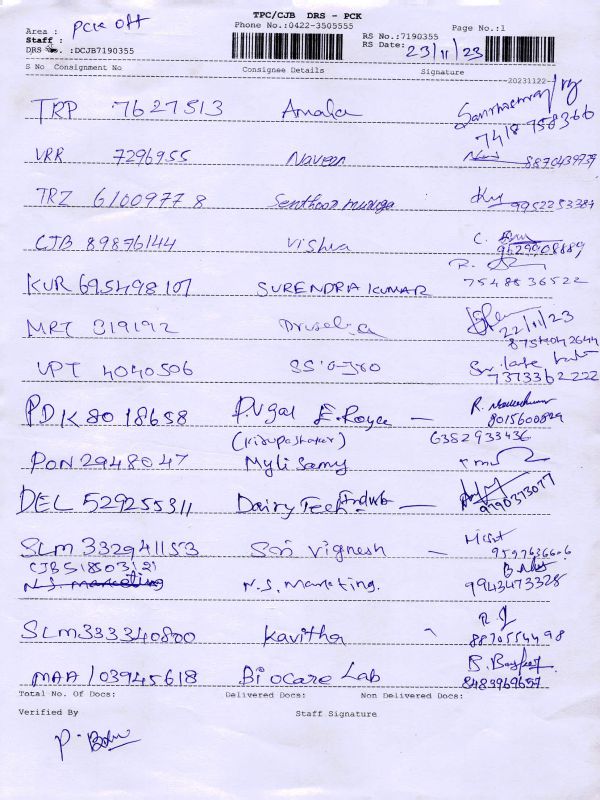 TPC/CJB DRS - PCK
Phone No.:0422-3505555
Page No.:1
Area : PCK Off
Staff :
RS No.:7190355
RS Date: 23/11/23
DRS No. :DCJB7190355
S No Consignment No Consignee Details Signature
20231122-
TRP 7627513 Amala
7418758366
VRR 7296955 Naveen 8870439739
TRZ 61009778 Senthoor muruga 9952253384
CJB 89876144 Vishva C.
9629908889
KUR 695498107 SURENDRA KUMAR 7548836522
MRT 819192
22/11/23
8754042644
VPT 4040506
7373362222
PDK 8018658 Pugal E. Royce — R.
8015600829
(Kirupashaker) 6382933436
PON 2948047 Myli Samy
DEL 529255311 Dairy Tech India — 9790373077
SLM 332941153 Sri Vignesh —
9597636606
CJB 51803121
N.S. Marketing N.S. Marketing. 9943473328
SLM 333340800 Kavitha
8870554498
MAA 103945618 Biocare Lab
8483969657
Total No. Of Docs: Delivered Docs: Non Delivered Docs:
Verified By Staff Signature